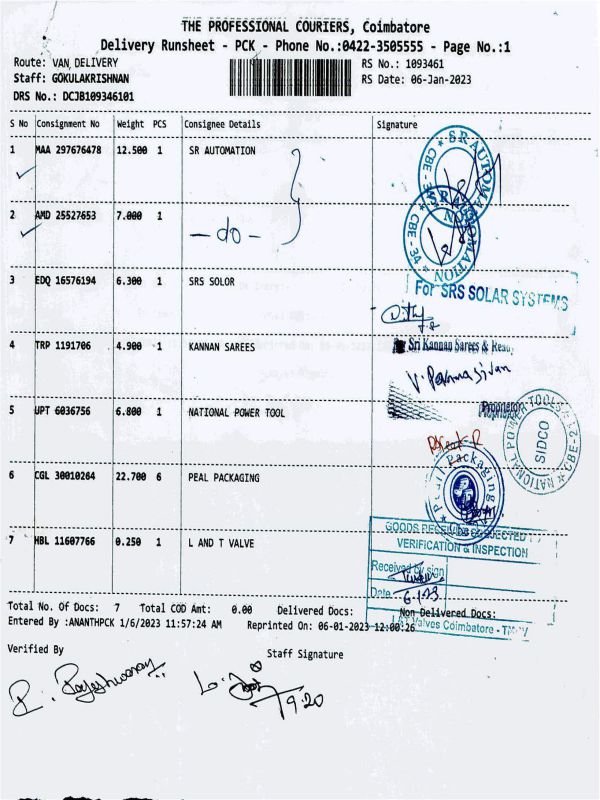 THE PROFESSIONAL COURIERS, Coimbatore
Delivery Runsheet - PCK - Phone No.:0422-3505555 - Page No.:1
Route: VAN DELIVERY RS No.: 1093461
Staff: GOKULAKRISHNAN RS Date: 06-Jan-2023
DRS No.: DCJB109346101
S No Consignment No Weight PCS Consignee Details Signature
1 MAA 297676478 12.500 1 SR AUTOMATION
SR AUTOMATION * CBE - 34 *
2 AMD 25527653 7.000 1 - do -
SR AUTOMATION * CBE - 34 *
3 EDQ 16576194 6.300 1 SRS SOLOR
For SRS SOLAR SYSTEMS
4 TRP 1191706 4.900 1 KANNAN SAREES
Sri Kannan Sarees & Read
5 UPT 6036756 6.800 1 NATIONAL POWER TOOL
Proprietor
NATIONAL POWER TOOLS * CBE-21 *
SIDCO
6 CGL 30010264 22.700 6 PEAL PACKAGING
Pearl Packaging
GOODS RECEIVED SUBJECTED
VERIFICATION & INSPECTION
7 HBL 11607766 0.250 1 L AND T VALVE
Received by sign
Date 6.1.23
L&T Valves Coimbatore -
Total No. Of Docs: 7 Total COD Amt: 0.00 Delivered Docs: Non Delivered Docs:
Entered By :ANANTHPCK 1/6/2023 11:57:24 AM Reprinted On: 06-01-2023 12:00:26
Verified By Staff Signature
R. Rajeshwaran
9.20